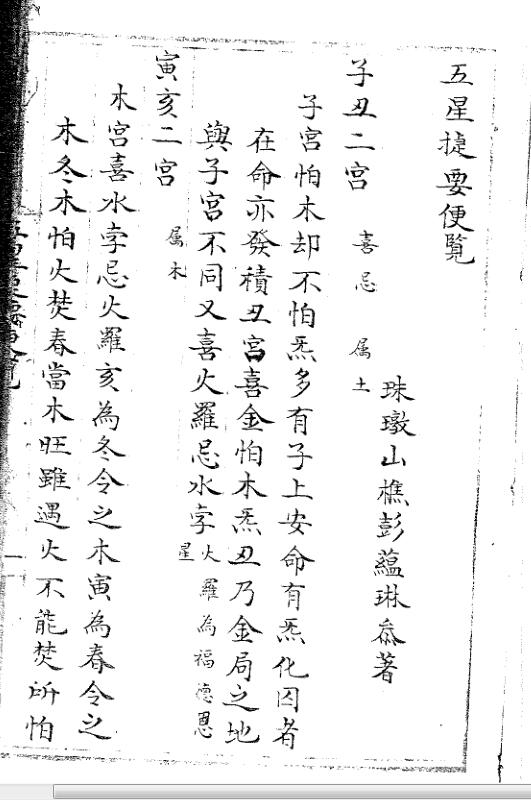 五星捷要便覧
珠璈山樵彭蘊琳叅著
子丑二宮 喜忌 属土
子宮怕木却不怕炁多有子上安命有炁化囚者
在命亦發積丑宮喜金怕木炁丑乃金局之地
與子宮不同又喜火羅忌水孛火羅為福德恩星
寅亥二宮 属木
木宮喜水孛忌火羅亥為冬令之木寅為春令之
木冬木怕火焚春當木旺雖遇火不能焚所怕